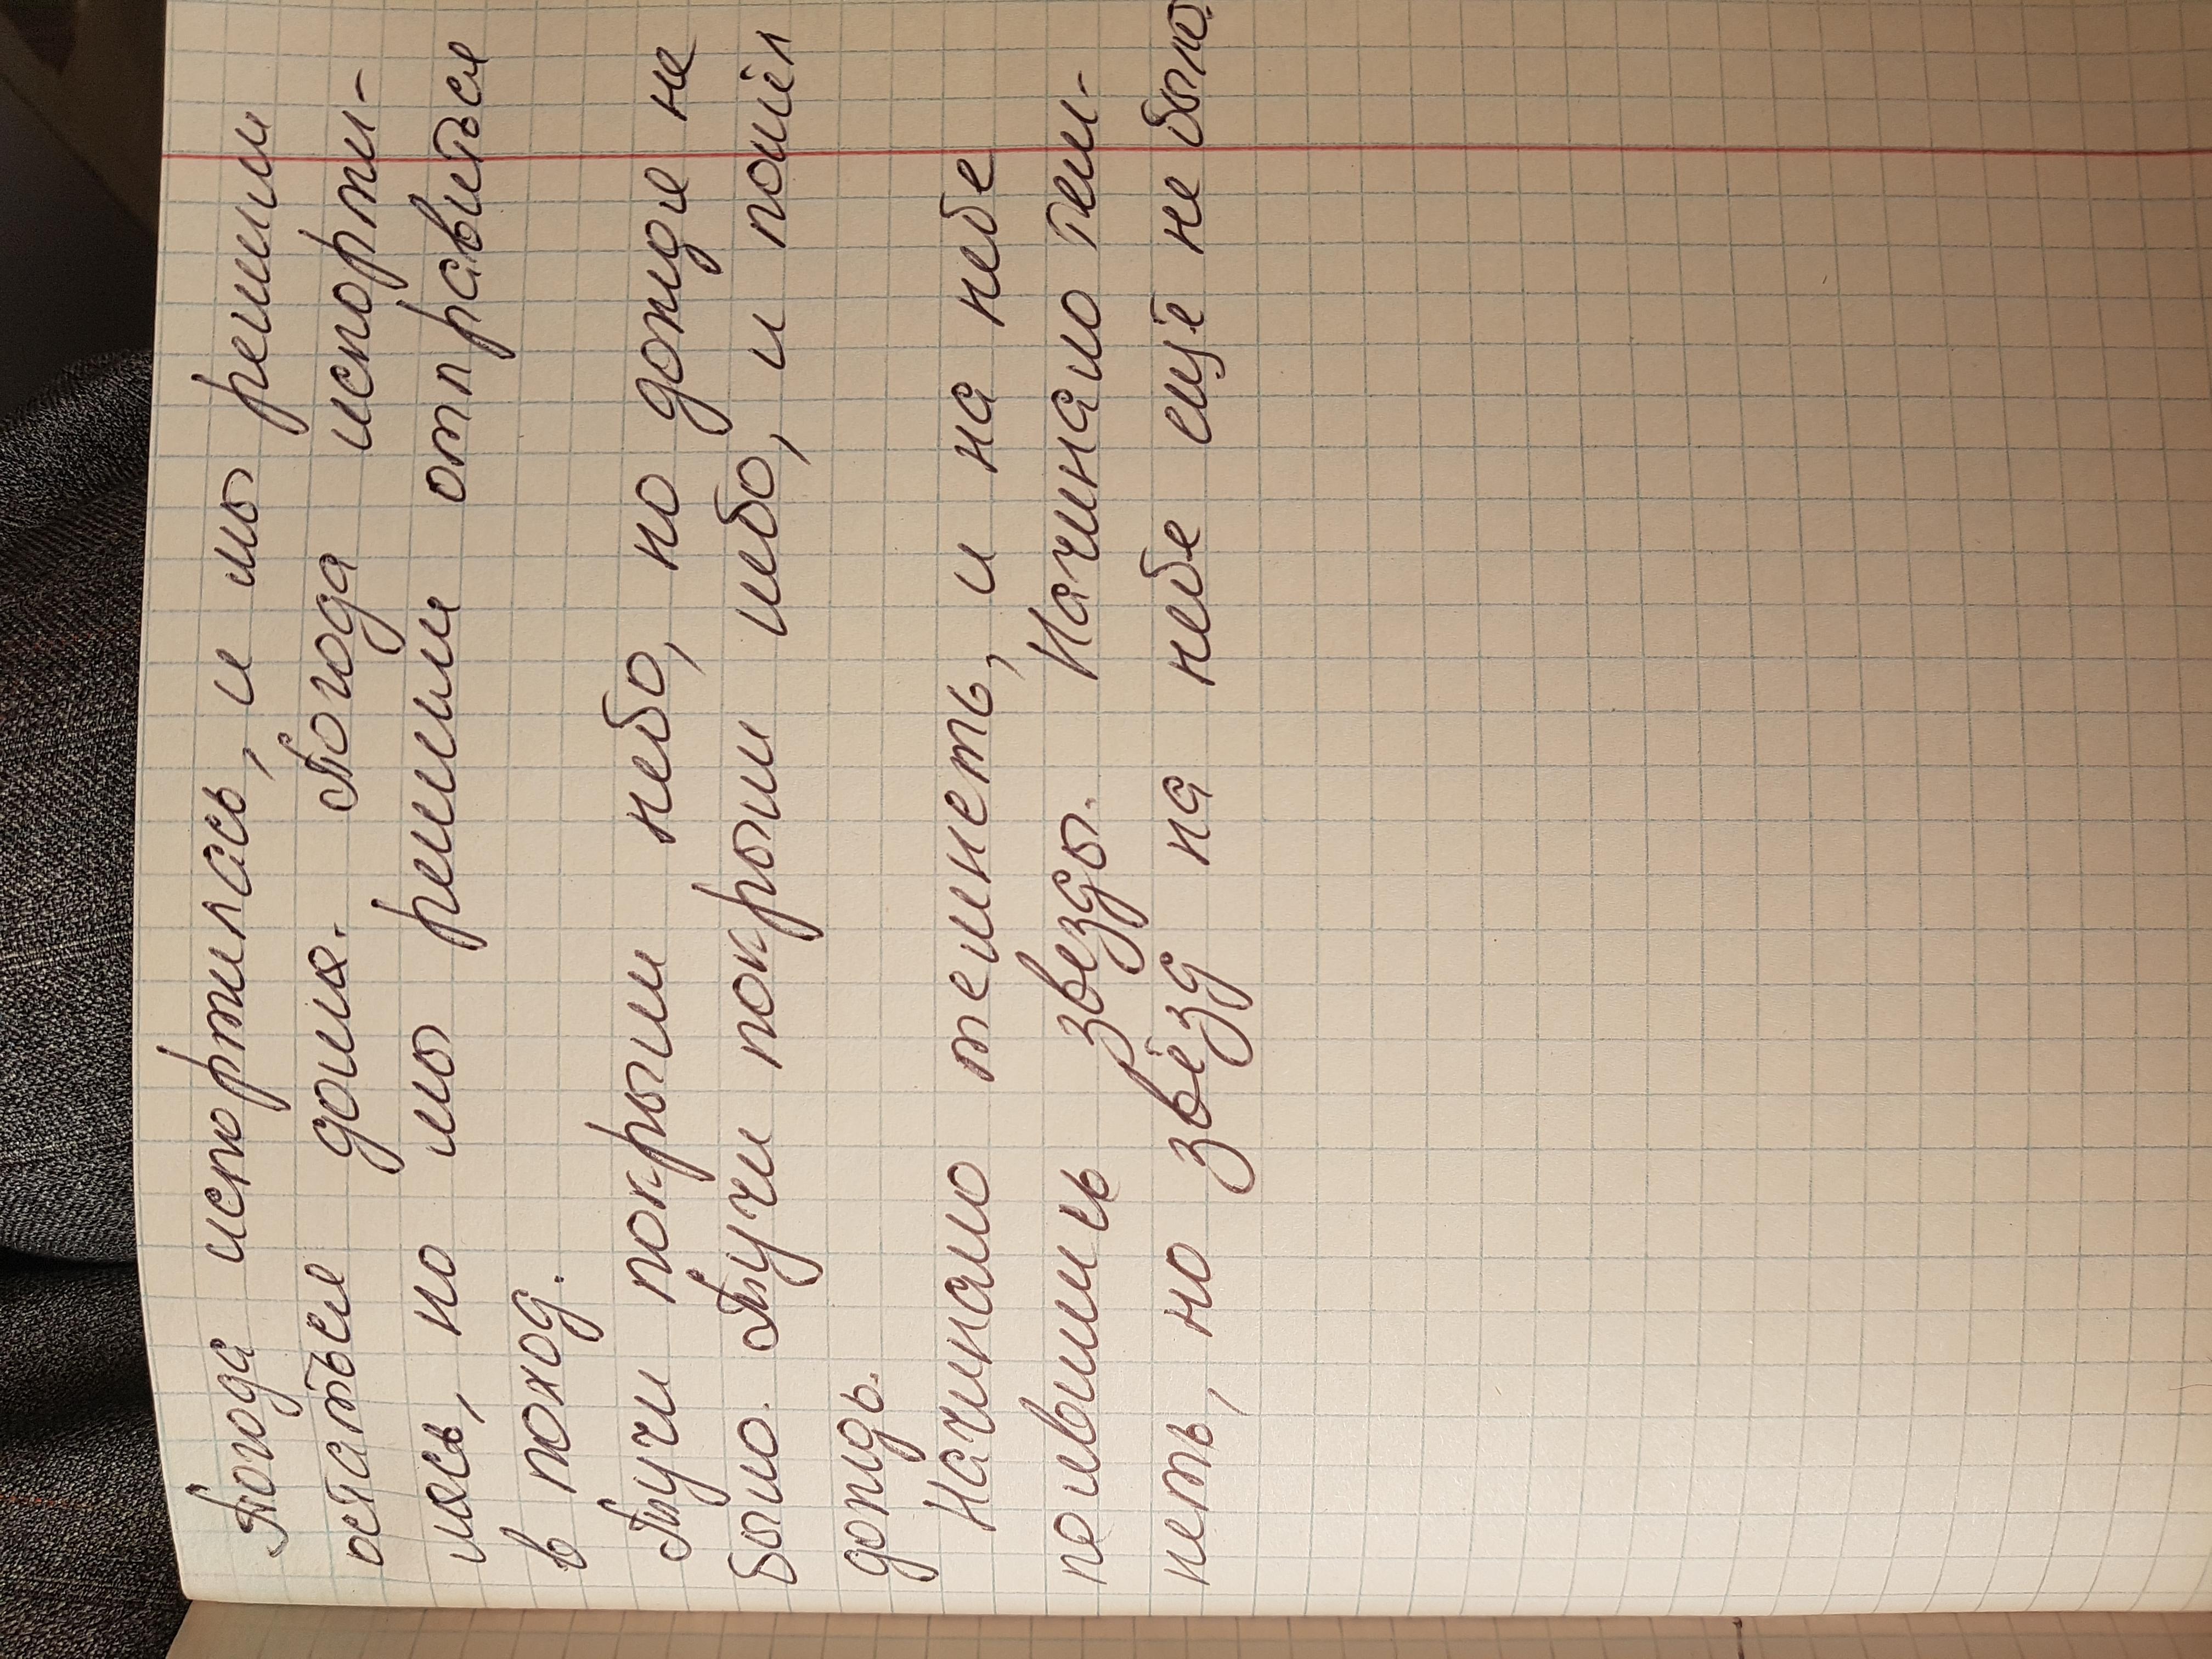 Погода испортилась, и мы решили
остаться дома. Погода испорти-
лась, но мы решили отправиться
в поход.
Тучи покрыли небо, но дождя не
было. Тучи покрыли небо, и пошёл
дождь.
Начинало темнеть, и на небе
появились звезды. Начинало тем-
неть, но звёзд на небе ещё не было.